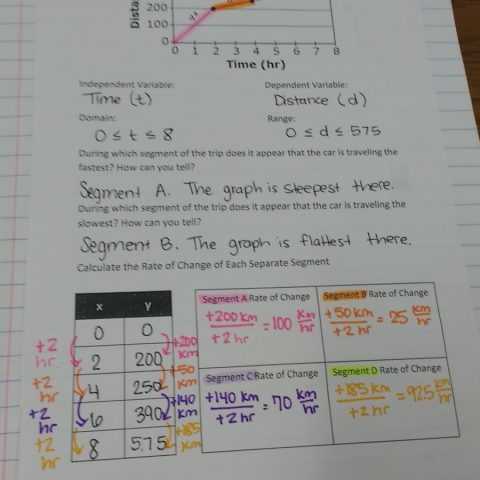 Dista
200
100
0
0 1 2 3 4 5 6 7 8
A
Time (hr)
Independent Variable: Dependent Variable:
Time (t) Distance (d)
Domain: Range:
0 ≤ t ≤ 8 0 ≤ d ≤ 575
During which segment of the trip does it appear that the car is traveling the
fastest? How can you tell?
Segment A. The graph is steepest there.
During which segment of the trip does it appear that the car is traveling the
slowest? How can you tell?
Segment B. The graph is flattest there.
Calculate the Rate of Change of Each Separate Segment
x y
0 0
2 200
4 250
6 390
8 575
+2 hr
+2 hr
+2 hr
+2 hr
+200 km
+50 km
+140 km
+185 km
Segment A Rate of Change
+200 km / +2 hr = 100 km/hr
Segment B Rate of Change
+50 km / +2 hr = 25 km/hr
Segment C Rate of Change
+140 km / +2 hr = 70 km/hr
Segment D Rate of Change
+185 km / +2 hr = 92.5 km/hr